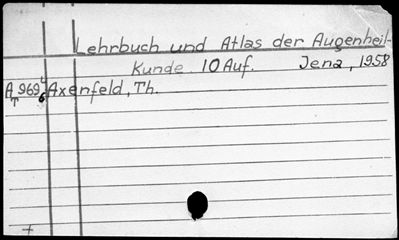 Lehrbuch und Atlas der Augenheil-
kunde. 10 Auf. Jena, 1958
A 969 Axenfeld, Th.
T 6